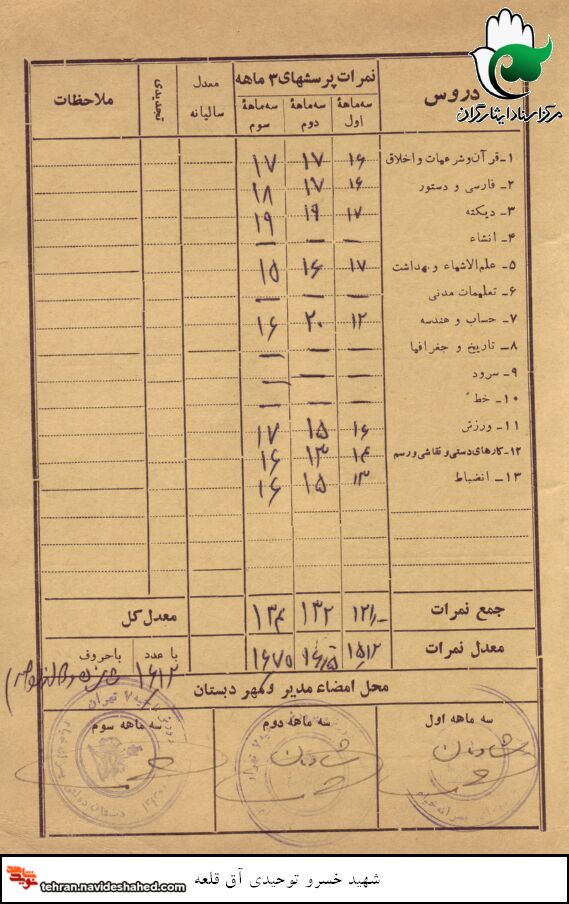 مرکز اسناد ایثارگران
دروس نمرات پرسشهای ۳ ماهه معدل سالیانه تجدیدی ملاحظات
سه ماهۀ اول سه ماهۀ دوم سه ماهۀ سوم
۱- قرآن و شرعیات و اخلاق ۱۶ ۱۷ ۱۷
۲- فارسی و دستور ۱۶ ۱۷ ۱۸
۳- دیکته ۱۷ ۱۹ ۱۹
۴- انشاء — — —
۵- علم‌الاشیاء و بهداشت ۱۷ ۱۶ ۱۵
۶- تعلیمات مدنی — — —
۷- حساب و هندسه ۱۲ ۲۰ ۱۶
۸- تاریخ و جغرافیا — — —
۹- سرود — — —
۱۰- خط — — —
۱۱- ورزش ۱۶ ۱۵ ۱۷
۱۲- کارهای دستی و نقاشی و رسم ۱۴ ۱۳ ۱۶
۱۳- انضباط ۱۳ ۱۵ ۱۶
جمع نمرات ۱۲۱ ۱۳۲ ۱۳۴ معدل کل
معدل نمرات ۱۵٫۱۲ ۱۶٫۵ ۱۶٫۷۵ با عدد باحروف
۱۶٫۱۲
محل امضاء مدیر و مهر دبستان
سه ماهه اول سه ماهه دوم سه ماهه سوم
شهید خسرو توحیدی آق قلعه
tehran.navideshahed.com